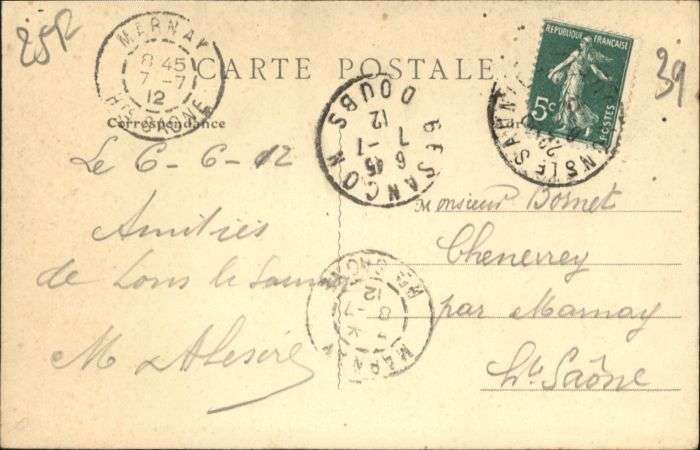 25F
MARNAY
8 45
7 -7
12
HTE SAONE
CARTE POSTALE
Correspondance
BESANCON
6 45
7 -7
12
DOUBS
REPUBLIQUE FRANÇAISE
5c
POSTES
LONS LE SAUNIER
39
Le 6-6-12
Amitiés
de Lons le Saunier
M
Monsieur Bornet
Chenevrey
par Marnay
Hte Saône
MARNAY
8
7 -7
12
HTE SAONE